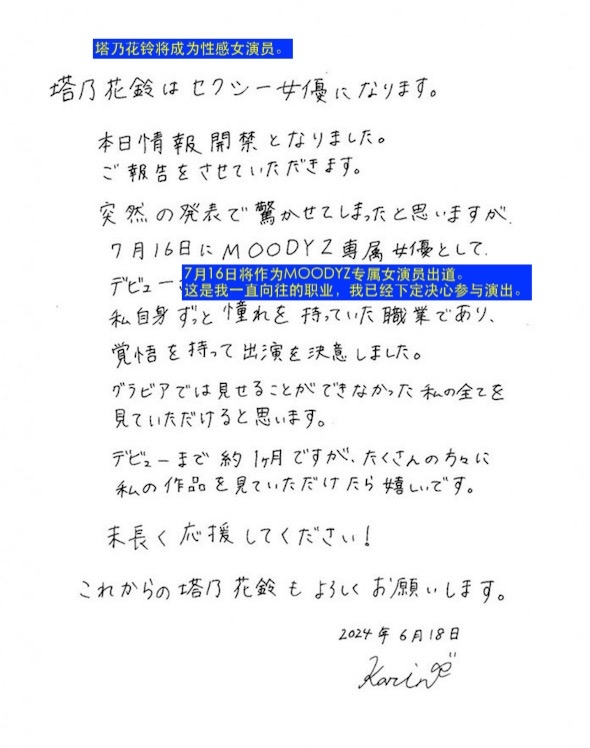 塔乃花铃将成为性感女演员。
塔乃花鈴はセクシー女優になります。
本日情報開禁となりました。
ご報告をさせていただきます。
突然の発表で驚かせてしまったと思いますが、
7月16日にMOODYZ専属女優として、
デビュー
7月16日将作为MOODYZ专属女演员出道。
这是我一直向往的职业，我已经下定决心参与演出。
私自身ずっと憧れを持っていた職業であり、
覚悟を持って出演を決意しました。
グラビアでは見せることができなかった私の全てを
見ていただけると思います。
デビューまで約1ヶ月ですが、たくさんの方々に
私の作品を見ていただけたら嬉しいです。
末長く応援してください!
これからの塔乃花鈴もよろしくお願いします。
2024年6月18日
Karin